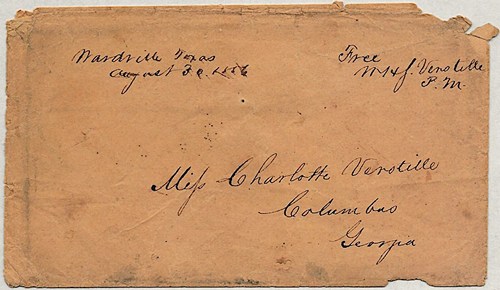 Wardville Texas
August 30. 1856
Free
W H J. Verstille
P. M.
Miss Charlotte Verstille
Columbus
Georgia